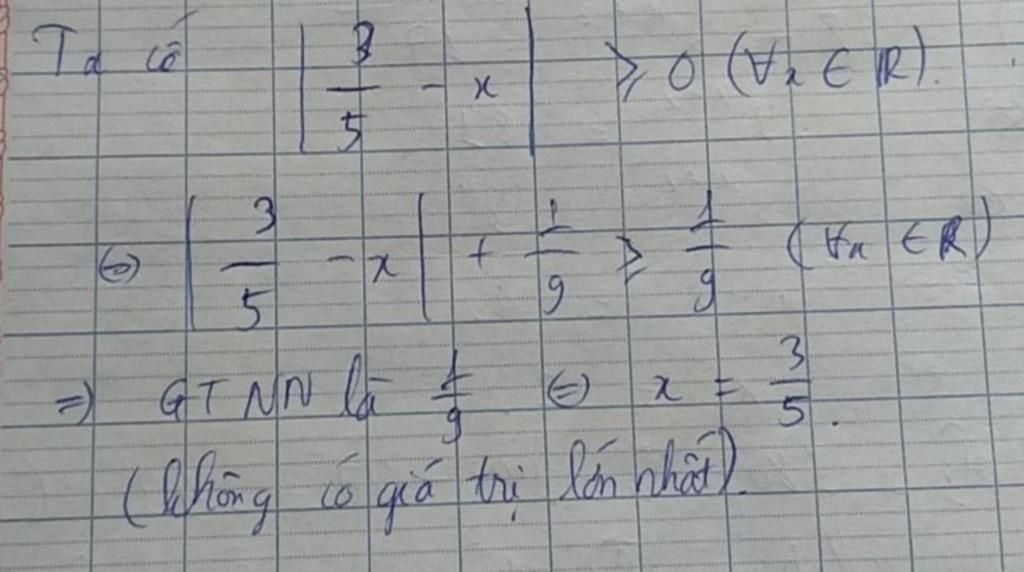 Ta có |3/5 - x| ≥ 0 (∀x ∈ R).
⇔ |3/5 - x| + 1/9 ≥ 1/9 (∀x ∈ R)
⇒ GTNN là 1/9 ⇔ x = 3/5.
(không có giá trị lớn nhất).